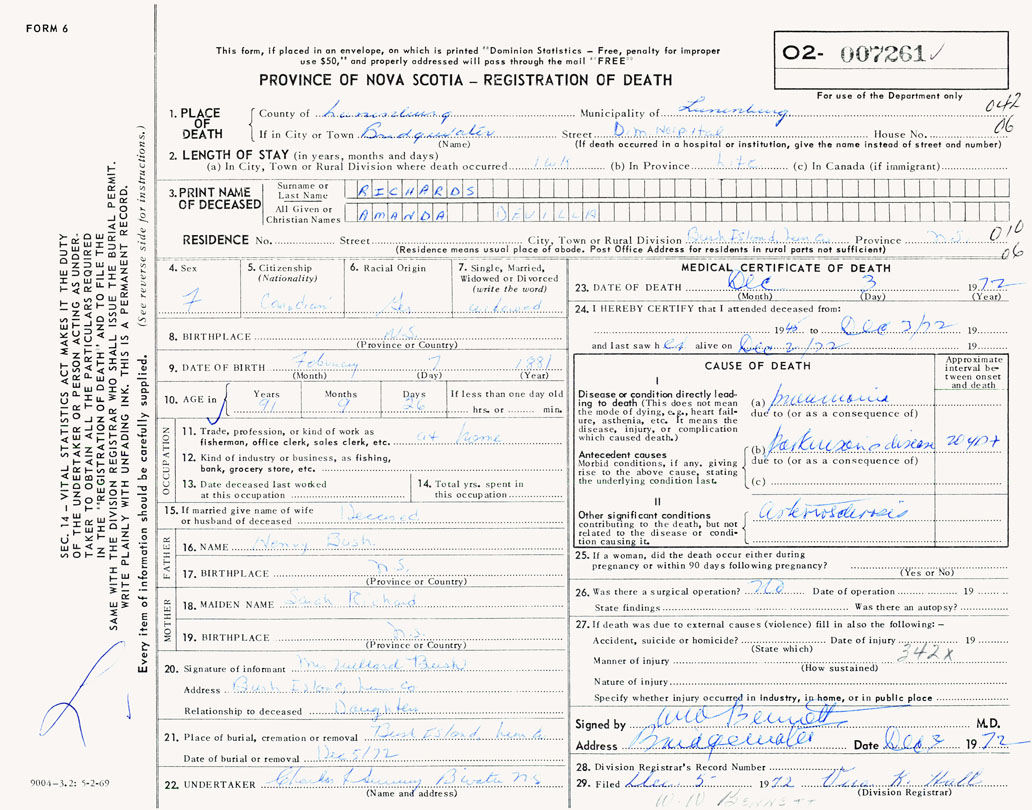 FORM 6
This form, if placed in an envelope, on which is printed "Dominion Statistics – Free, penalty for improper
use $50," and properly addressed will pass through the mail "FREE"
PROVINCE OF NOVA SCOTIA – REGISTRATION OF DEATH
O2- 007261
For use of the Department only
042
06
1. PLACE OF DEATH
County of Lunenburg Municipality of Lunenburg
If in City or Town Bridgewater Street D.M. Hospital House No.
(Name) (If death occurred in a hospital or institution, give the name instead of street and number)
2. LENGTH OF STAY (in years, months and days)
(a) In City, Town or Rural Division where death occurred 1 wk (b) In Province Life (c) In Canada (if immigrant)
3. PRINT NAME OF DECEASED
Surname or Last Name RICHARDS
All Given or Christian Names AMANDA DEVILLA
RESIDENCE No. Street City, Town or Rural Division Bush Island, Lun Co. Province N.S.
(Residence means usual place of abode. Post Office Address for residents in rural parts not sufficient)
010
06
4. Sex F
5. Citizenship (Nationality) Canadian
6. Racial Origin Ger
7. Single, Married, Widowed or Divorced (write the word) widowed
8. BIRTHPLACE N.S.
(Province or Country)
9. DATE OF BIRTH February 7 1881
(Month) (Day) (Year)
10. AGE in Years 91 Months 9 Days 26 If less than one day old hrs. or min.
OCCUPATION
11. Trade, profession, or kind of work as fisherman, office clerk, sales clerk, etc. at home
12. Kind of industry or business, as fishing, bank, grocery store, etc.
13. Date deceased last worked at this occupation
14. Total yrs. spent in this occupation
15. If married give name of wife or husband of deceased Deceased
FATHER
16. NAME Henry Bush
17. BIRTHPLACE N.S.
(Province or Country)
MOTHER
18. MAIDEN NAME Sarah Richard
19. BIRTHPLACE N.S.
(Province or Country)
20. Signature of informant Mrs Willard Bush
Address Bush Island, Lunn Co.
Relationship to deceased Daughter
21. Place of burial, cremation or removal Bush Island Lun Co.
Date of burial or removal Dec 5/72
22. UNDERTAKER Charles B'water NS
(Name and address)
MEDICAL CERTIFICATE OF DEATH
23. DATE OF DEATH Dec 3 1972
(Month) (Day) (Year)
24. I HEREBY CERTIFY that I attended deceased from:
19 to Dec 3/72 19
and last saw her alive on Dec 3/72 19
CAUSE OF DEATH
Approximate interval between onset and death
I
Disease or condition directly leading to death (This does not mean the mode of dying, e.g., heart failure, asthenia, etc. It means the disease, injury, or complication which caused death.)
(a) pneumonia
due to (or as a consequence of)
Antecedent causes
Morbid conditions, if any, giving rise to the above cause, stating the underlying condition last.
(b) Parkinsons disease 20 yr+
due to (or as a consequence of)
(c)
II
Other significant conditions contributing to the death, but not related to the disease or condition causing it.
25. If a woman, did the death occur either during
pregnancy or within 90 days following pregnancy?
(Yes or No)
26. Was there a surgical operation? no Date of operation 19
State findings Was there an autopsy?
27. If death was due to external causes (violence) fill in also the following: –
Accident, suicide or homicide? Date of injury 19
(State which) 342x
Manner of injury
(How sustained)
Nature of injury
Specify whether injury occurred in industry, in home, or in public place
Signed by Bennett M.D.
Address Bridgewater Date Dec 3 1972
28. Division Registrar's Record Number
29. Filed Dec 5 1972 Vera K. Hall
(Division Registrar)
W. D BENNETT
SEC. 14 – VITAL STATISTICS ACT MAKES IT THE DUTY
OF THE UNDERTAKER OR PERSON ACTING AS UNDER-
TAKER TO OBTAIN ALL THE PARTICULARS REQUIRED
IN THE "REGISTRATION OF DEATH" AND TO FILE THE
SAME WITH THE DIVISION REGISTRAR WHO SHALL ISSUE THE BURIAL PERMIT.
WRITE PLAINLY WITH UNFADING INK. THIS IS A PERMANENT RECORD.
Every item of information should be carefully supplied. (See reverse side for instructions.)
9004-3.2: 5-2-69